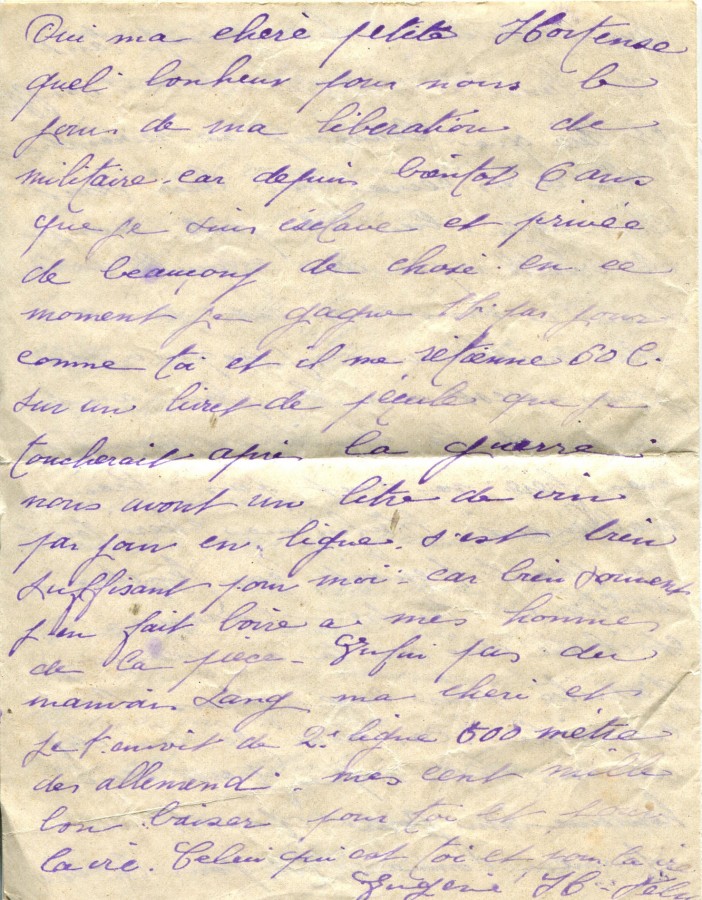 Oui ma cheré petite Hortense
quel bonheur pour nous le
jour de ma liberation de
militaire. car depuis bientot 6 ans
que je suis esclave et privée
de beaucoup de chose. en ce
moment je gagne par jour
comme toi et il me retienne 60 C.
sur un livret de pécule que je
toucherait apres la guerre.
nous avont un litre de vin
par jour en ligne. s'est bien
suffisant pour moi. car bien souvent
j'en fait boire a mes hommes
de la pièce. Enfin pas du
mauvais sang ma cheri et
je t'envoit de 2e ligne 500 mètre
des allemend. mes cent mille
bon baiser pour toi et pour
la vie. Celui qui est toi et pour la vie
Eugène H